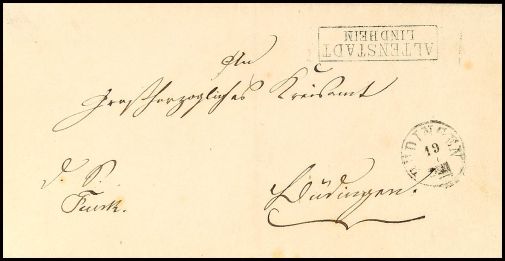 ALTENSTADT
LINDHEIM
An
Großherzogliches Kreisamt
d. S.
Büdingen.
BÜDINGEN
19